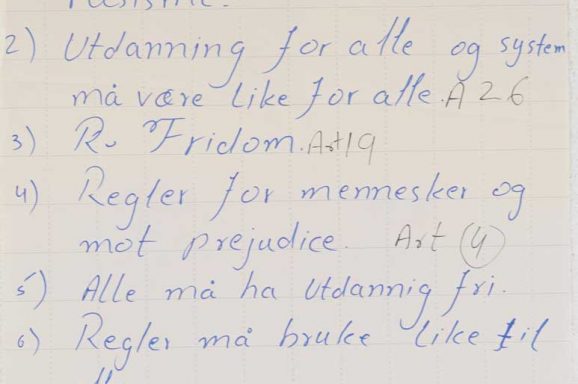 2) Utdanning for alle og system
må være like for alle. A 26
3) R. Fridom. Art 19
4) Regler for mennesker og
mot prejudice. Art (4)
5) Alle må ha Utdannig fri.
6) Regler må bruke like til